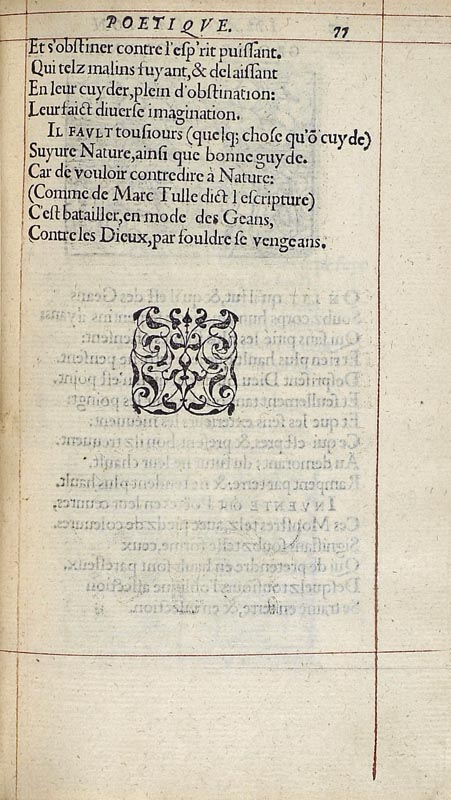 POETIQVE. 77
Et s'obstiner contre l'esp'rit puissant.
Qui telz malins fuyant, & delaissant
En leur cuyder, plein d'obstination:
Leur faict diuerse imagination.
IL FAVLT tousiours (quelq; chose qu'ō cuyde)
Suyure Nature, ainsi que bonne guyde.
Car de vouloir contredire à Nature:
(Comme de Marc Tulle dict l'escripture)
C'est batailler, en mode des Geans,
Contre les Dieux, par fouldre se vengeans.